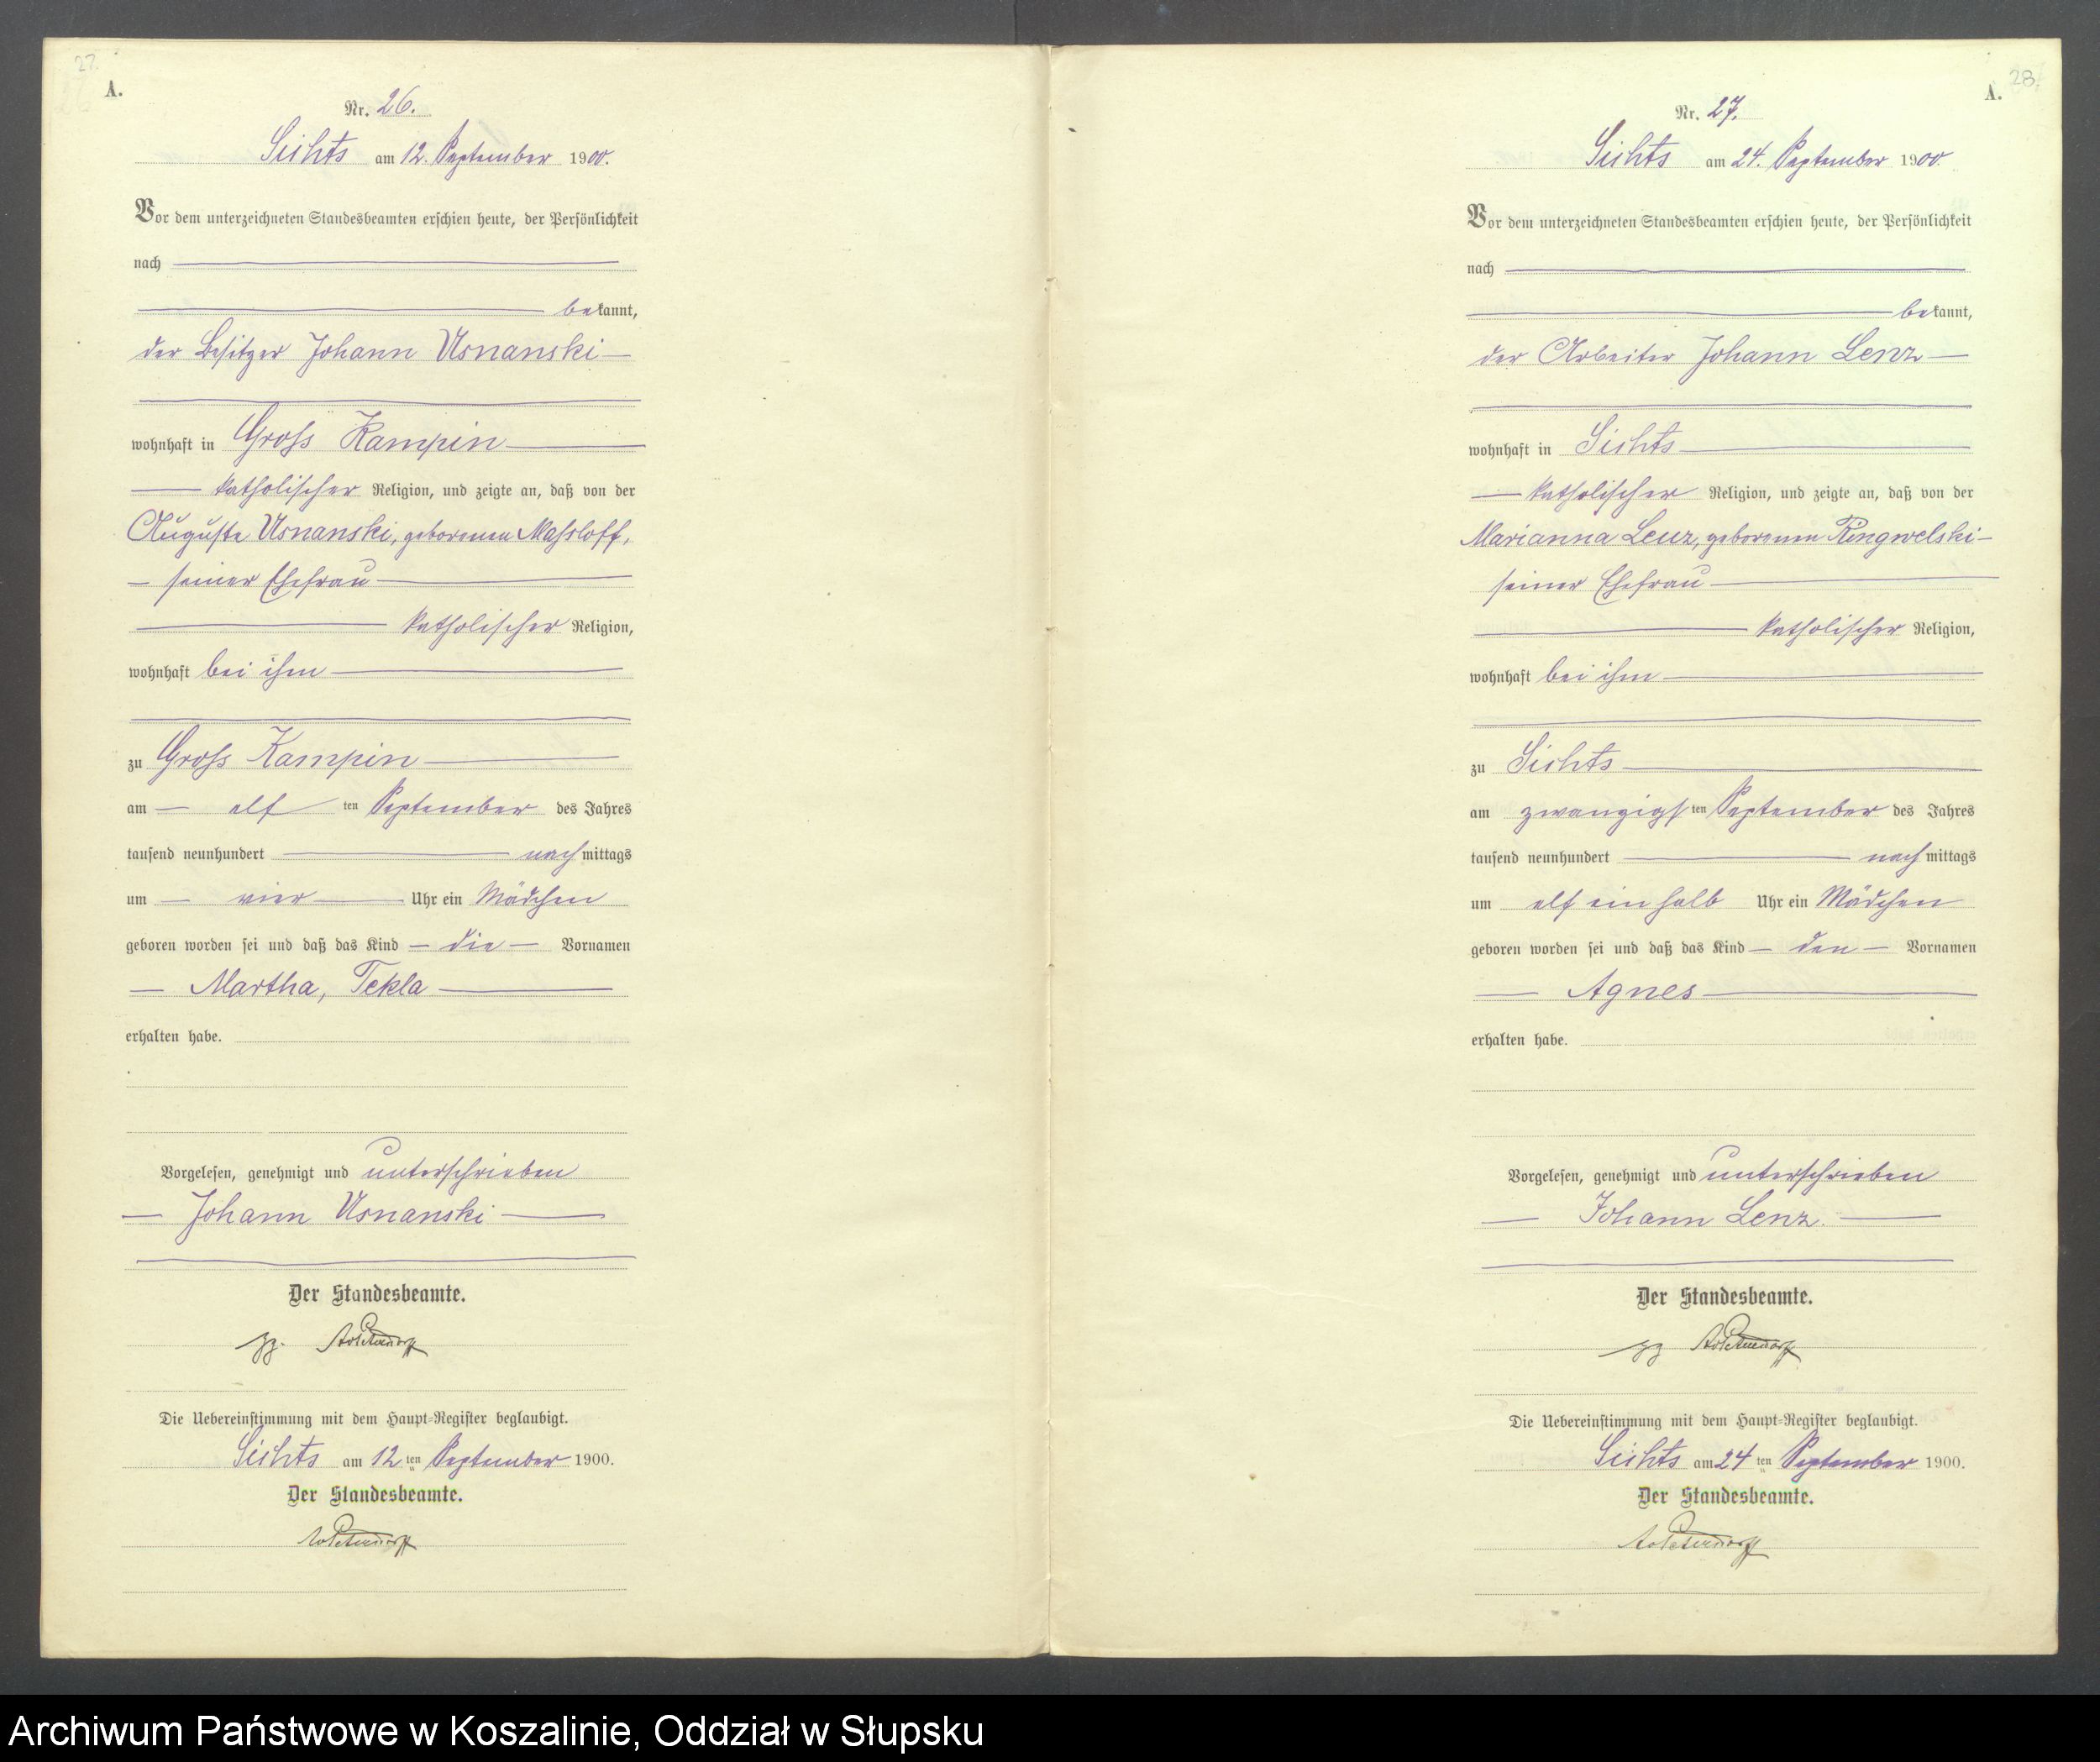 27.
A.
Nr. 26.
Sichts am 12. September 1900.
Vor dem unterzeichneten Standesbeamten erschien heute, der Persönlichkeit
nach
bekannt,
der Besitzer Johann Usnanski
wohnhaft in Gross Kampin
katholischer Religion, und zeigte an, daß von der
Auguste Usnanski, geborenen Massloff,
seiner Ehefrau
katholischer Religion,
wohnhaft bei ihm
zu Gross Kampin
am elf ten September des Jahres
tausend neunhundert nachmittags
um vier Uhr ein Mädchen
geboren worden sei und daß das Kind die Vornamen
Martha, Tekla
erhalten habe.
Vorgelesen, genehmigt und unterschrieben
Johann Usnanski
Der Standesbeamte.
gz.
Die Uebereinstimmung mit dem Haupt-Register beglaubigt.
Sichts am 12 ten September 1900.
Der Standesbeamte.
28
A.
Nr. 27.
Sichts am 24. September 1900.
Vor dem unterzeichneten Standesbeamten erschien heute, der Persönlichkeit
nach
bekannt,
der Arbeiter Johann Lenz
wohnhaft in Sichts
katholischer Religion, und zeigte an, daß von der
Marianna Lenz, geborenen Ringwelski
seiner Ehefrau
katholischer Religion,
wohnhaft bei ihm
zu Sichts
am zwanzigsten September des Jahres
tausend neunhundert nachmittags
um elf ein halb Uhr ein Mädchen
geboren worden sei und daß das Kind den Vornamen
Agnes
erhalten habe.
Vorgelesen, genehmigt und unterschrieben
Johann Lenz.
Der Standesbeamte.
gz
Die Uebereinstimmung mit dem Haupt-Register beglaubigt.
Sichts am 24 ten September 1900.
Der Standesbeamte.
Archiwum Państwowe w Koszalinie, Oddział w Słupsku